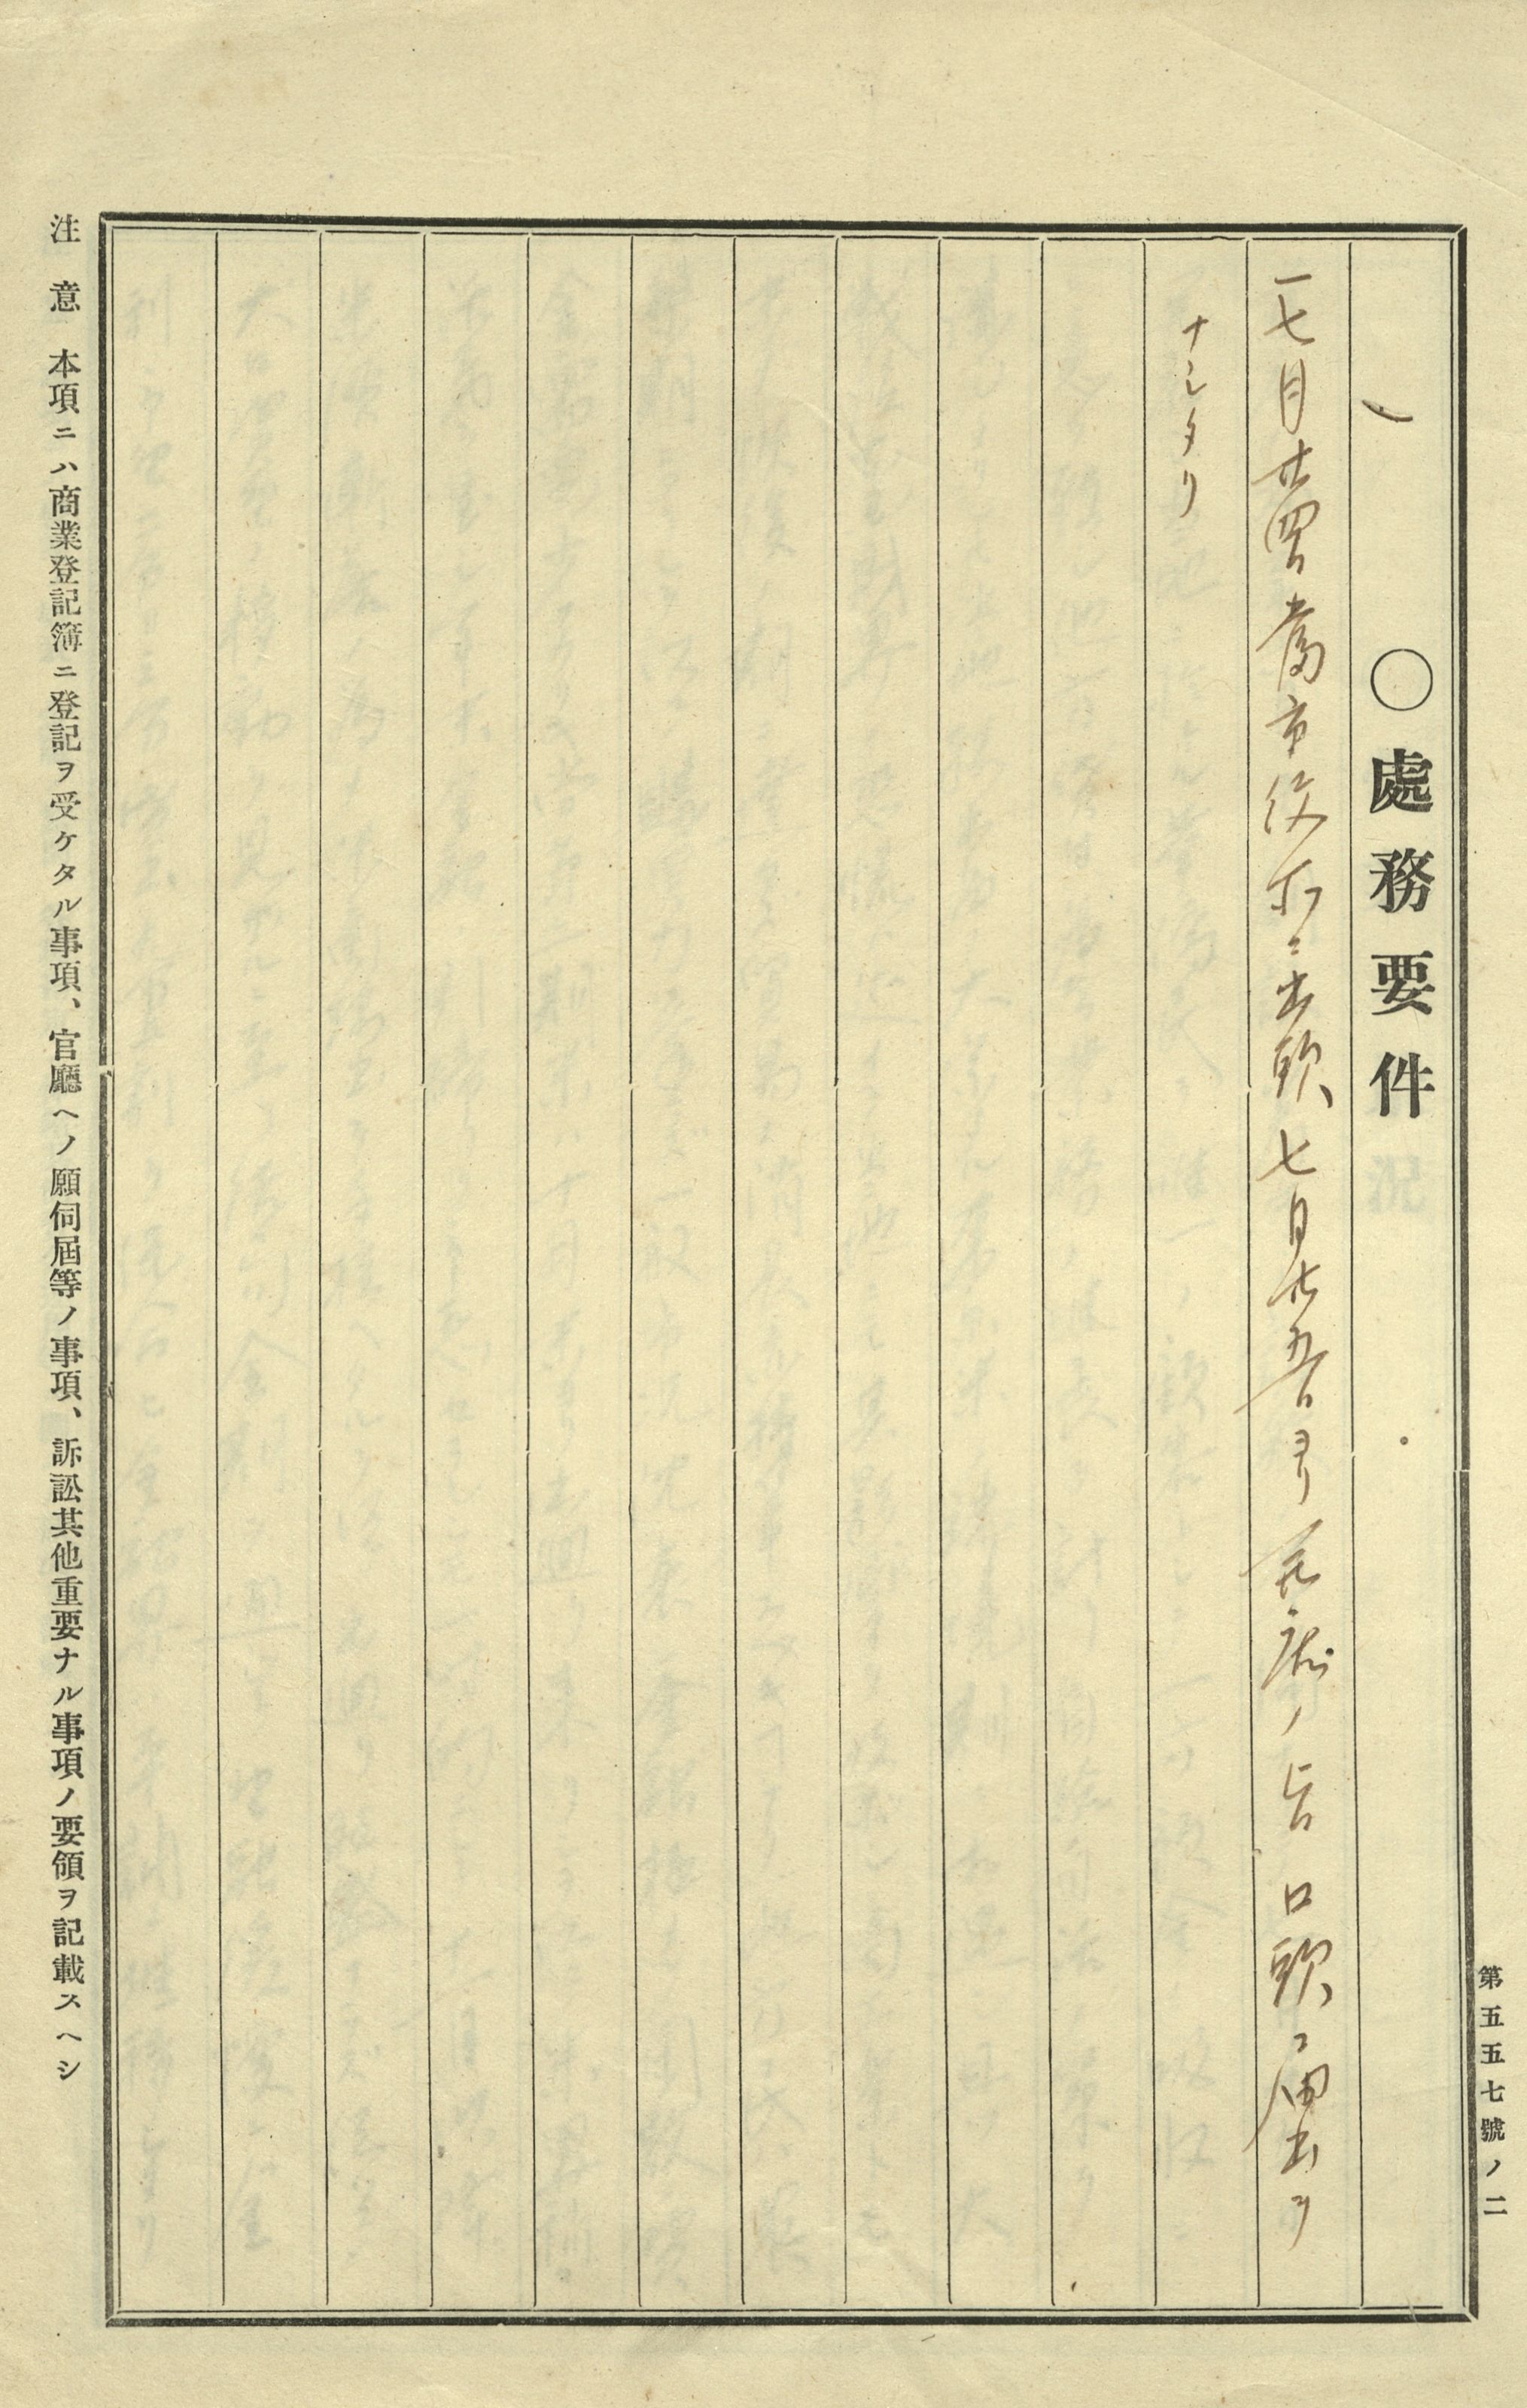 第五五七號ノ二
〇處務要件
一七月廿四日當市役所ニ出頭七月廿五日ヨリ開店ノ旨口頭ニ届出ヲ
ナシタリ
注意 本項ニハ商業登記簿ニ登記ヲ受ケタル事項、官廳ヘノ願伺屆等ノ事項、訴訟其他重要ナル事項ノ要領ヲ記載スヘシ